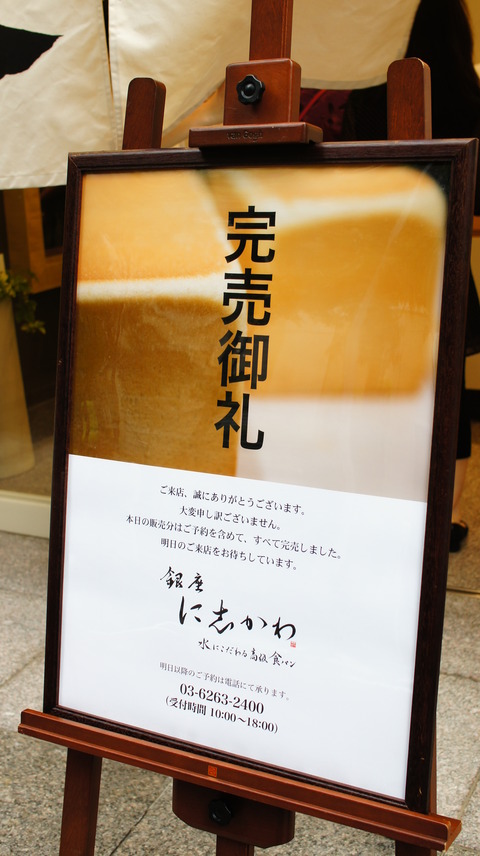 完売御礼
ご来店、誠にありがとうございます。
大変申し訳ございません。
本日の販売分はご予約を含めて、すべて完売しました。
明日のご来店をお待ちしています。
銀座
に志かわ
水にこだわる高級食パン
明日以降のご予約は電話にて承ります。
03-6263-2400
(受付時間 10:00〜18:00)